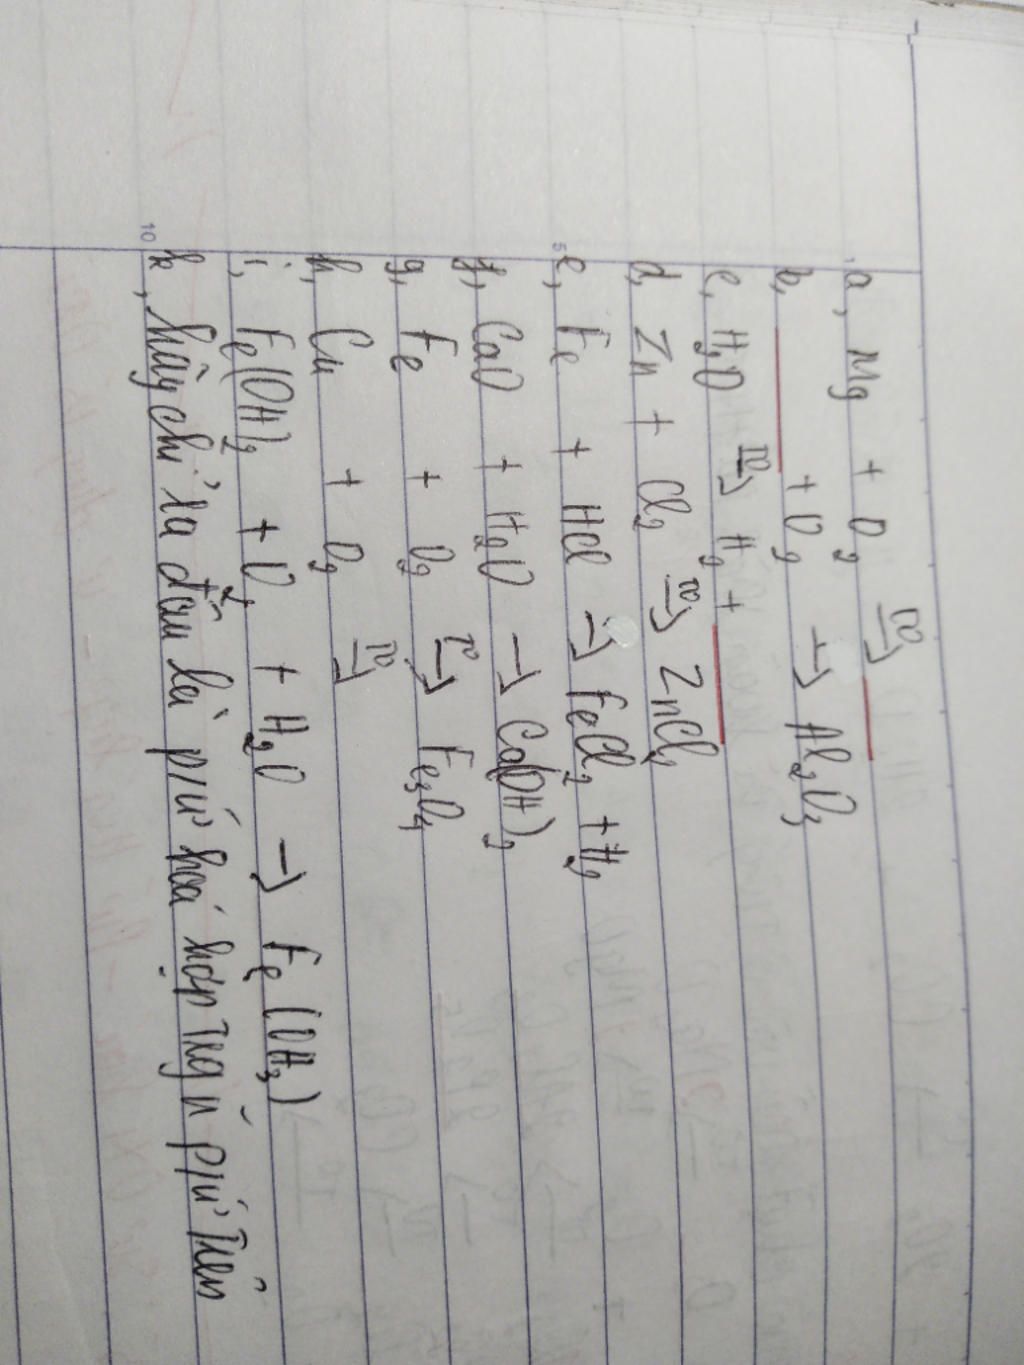 a, Mg + O₂ t⁰→ ___
b, ___ + O₂ → Al₂O₃
c, H₂O t⁰→ H₂ + ___
d, Zn + Cl₂ t⁰→ ZnCl₂
5
e, Fe + HCl → FeCl₂ + H₂
f, CaO + H₂O → Ca(OH)₂
g, Fe + O₂ t⁰→ Fe₃O₄
h, Cu + O₂ t⁰→
i, Fe(OH)₂ + O₂ + H₂O → Fe(OH₃)
10
k, hãy chỉ ra đâu là p/ứ hoá hợp trg n̉ p/ứ trên